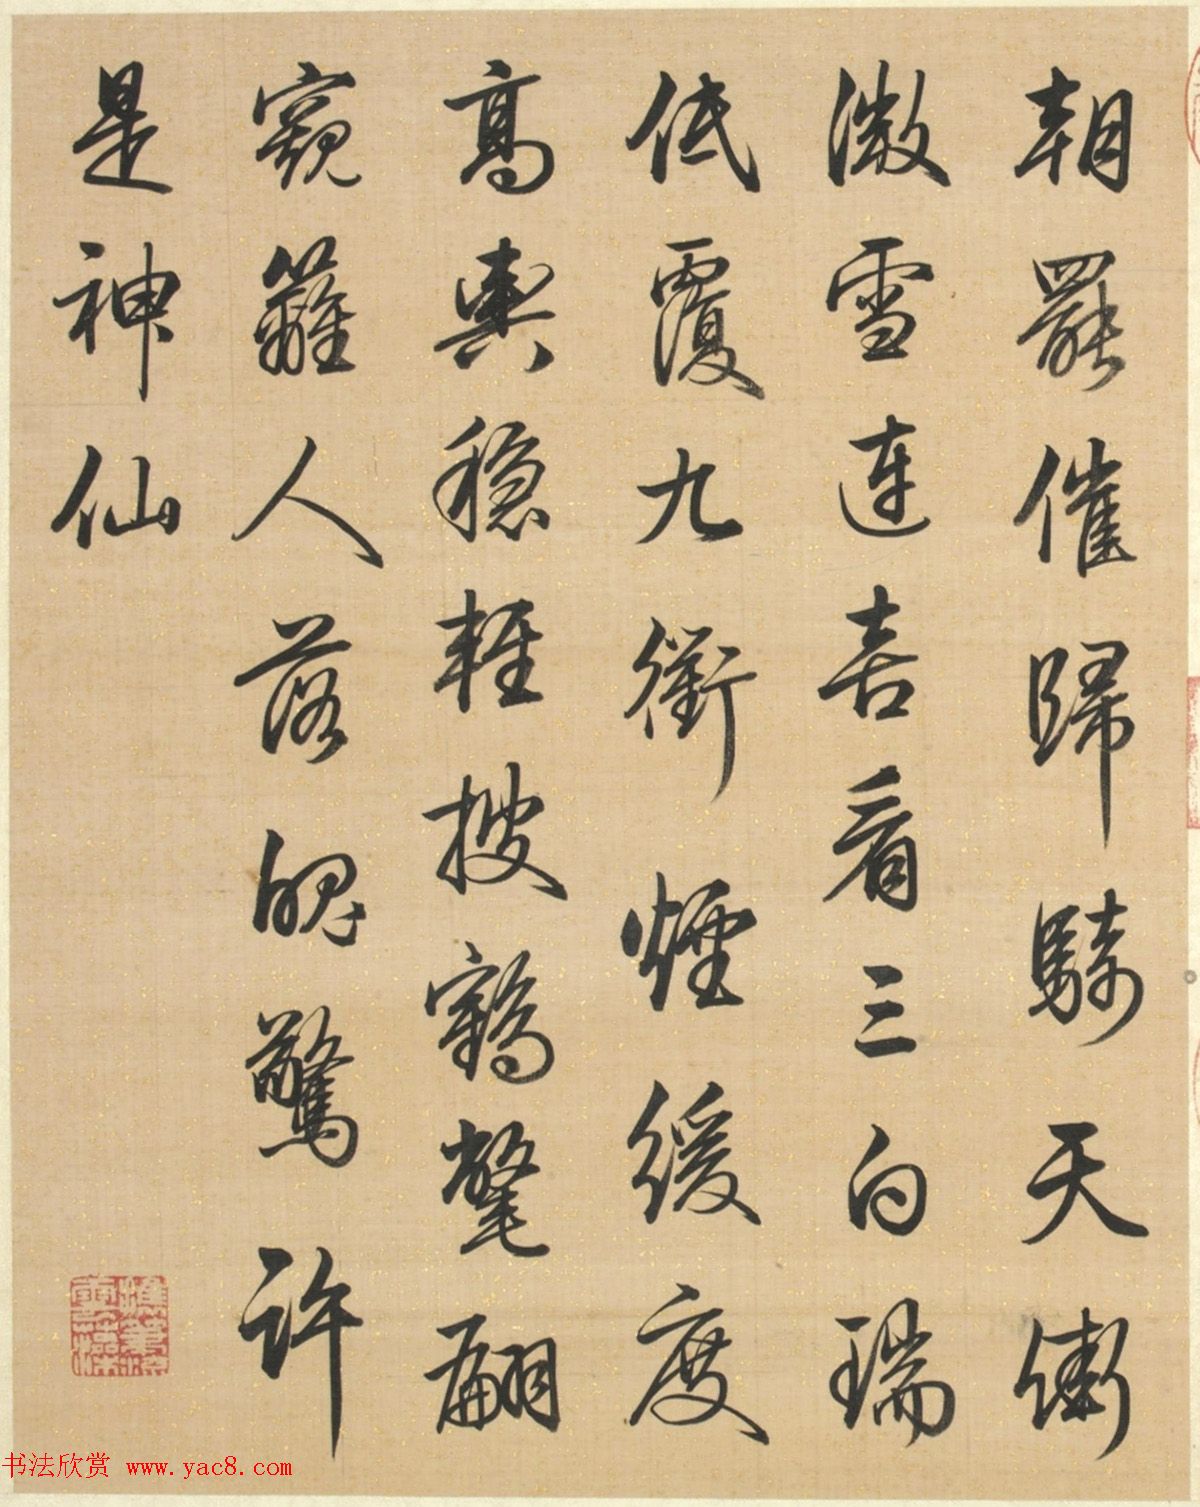 朝罷催歸騎天街
微雪連喜看三白瑞
低覆九衢煙緩度
高輿穩輕披鶴氅翩
窺籬人落魄驚許
是神仙
书法欣赏 www.yac8.com